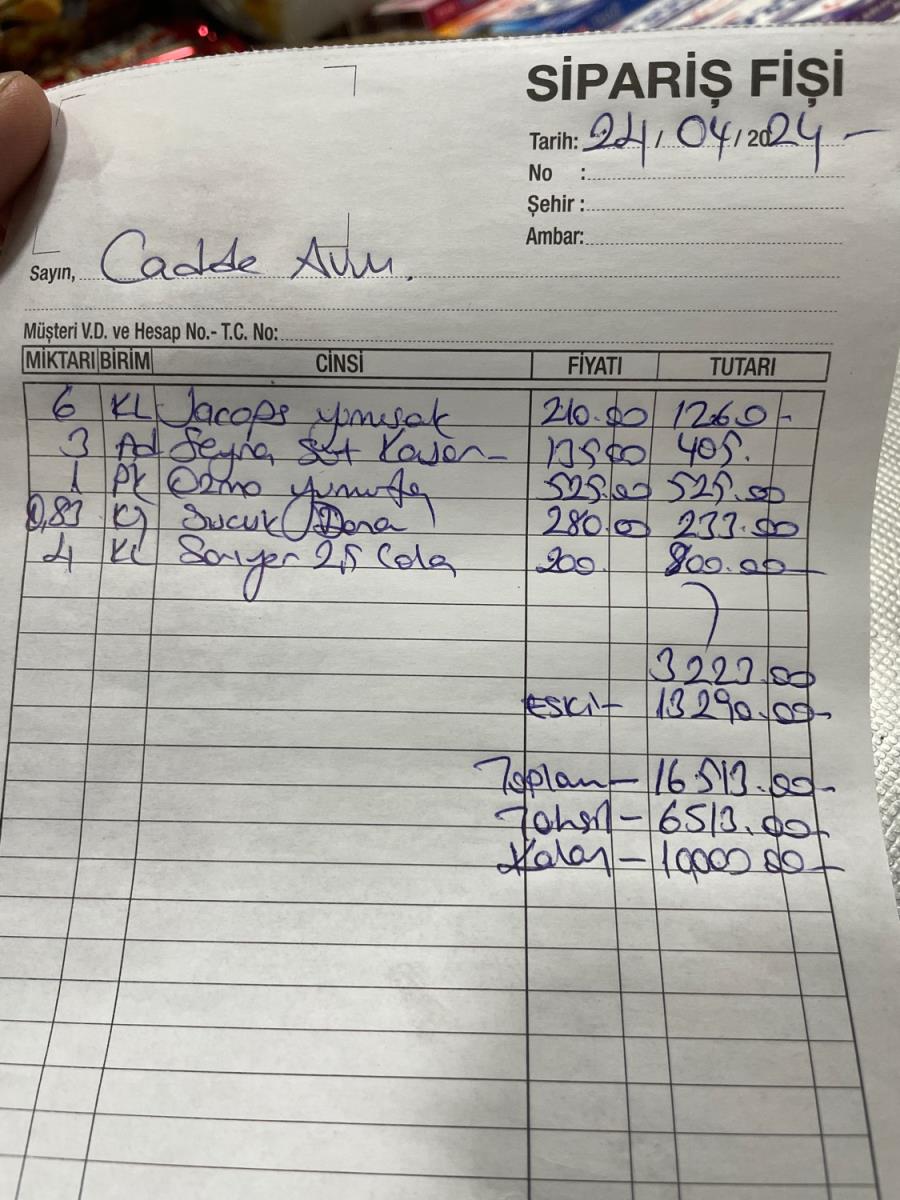 SİPARİŞ FİŞİ
Tarih: 24/04/2024-
No :
Şehir :
Ambar:
Sayın, Cadde Avm.
Müşteri V.D. ve Hesap No.- T.C. No:
MİKTARI BİRİM CİNSİ FİYATI TUTARI
6 KL Jacops yumuşak 210.00 1260-
3 Ad Seyra Süt 135.00 405.
1 Pk yumurta 525.00 525.00
0,83 Kg Sucuk Dana 280.00 233.00
4 KL Sarıyer 2,5 Cola 200. 800.00
3223.00
ESKİ- 13290.00-
Toplam- 16513.00-
Tahsil- 6513.00-
Kalan- 10000.00-